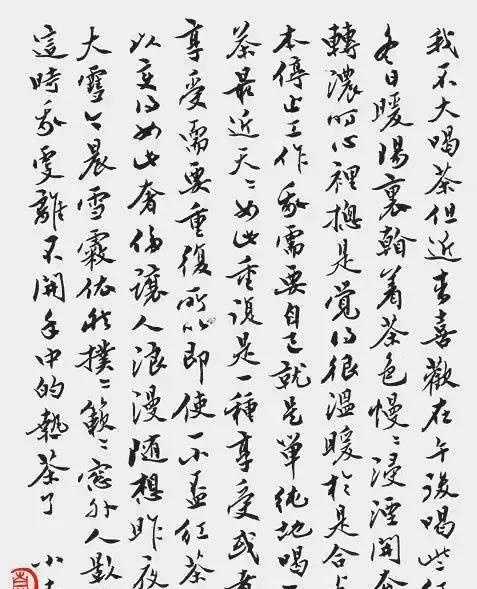 我不大喝茶但近來喜歡在午後喝些紅
冬日暖陽裏翰着茶色慢〻浸湮開奔
轉濃而心裡總是覺得很溫暖於是合上
本停止工作我需要自己就是單純地喝一
茶最近天〻如此重複是一種享受或者
享受需要重復所以即使一小盃紅茶
以變得如此奢侈讓人浪漫隨想昨夜
大雪今晨雪霰依然撲〻簌〻窓外人影
這時我更離不開手中的熱茶了
小